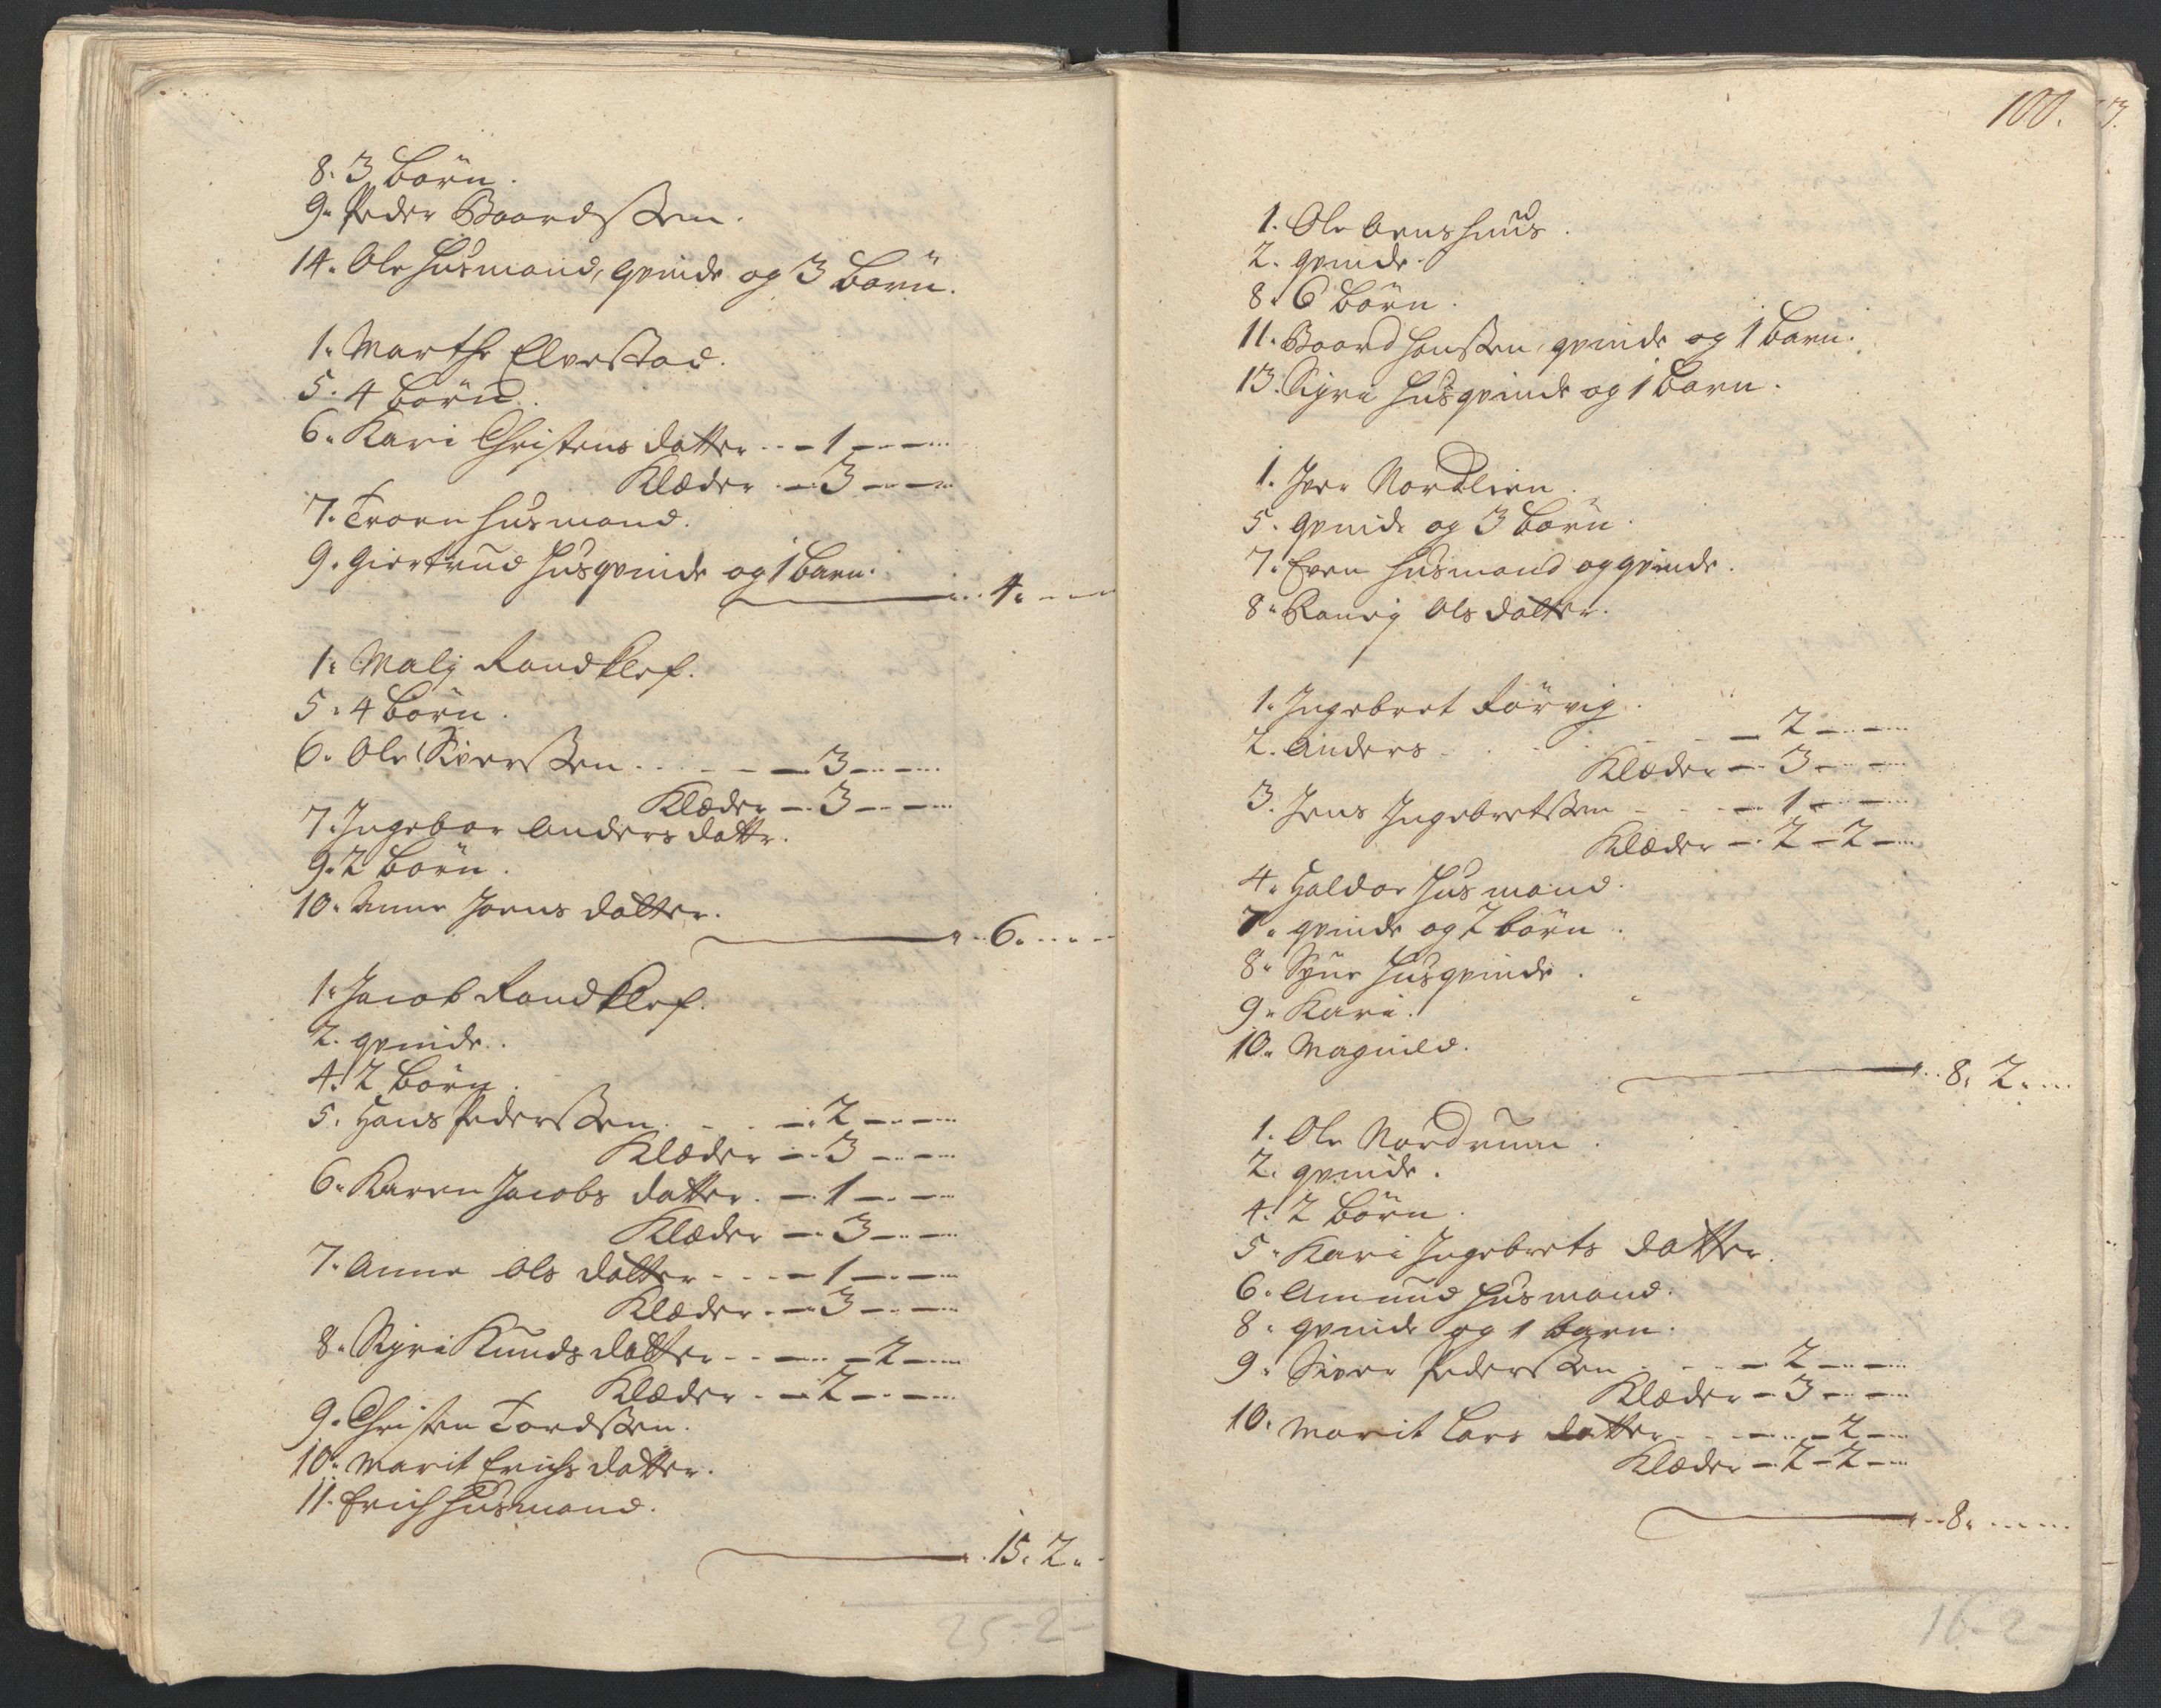 8. 3 börn.
9. Peder Baardssen.
14. Ole Husmand, qvinde og 3 börn.
1. Marthe Elvestad.
5. 4 börn.
6. Kari Christens datter - 1 -
Klæder - 3 -
7. Troen Husmand.
9. Giertrud Husqvinde og 1 barn.
4.
1. Mali Randklef.
5. 4 börn.
6. Ole Siverssen - 3 -
Klæder - 3 -
7. Ingebor Anders datter.
9. 2 börn.
10. Anne Joens datter.
6.
1. Jacob Randklef.
2. qvinde.
4. 2 börn.
5. Hans Pederssen - 2 -
Klæder - 3 -
6. Karen Jacobs datter - 1 -
Klæder - 3 -
7. Anne Ols datter - 1 -
Klæder - 3 -
8. Sigri Knuds datter - 2 -
Klæder - 2 -
9. Christen Tordssen.
10. Marit Erichs datter.
11. Erich Husmand.
15. 2.
25-2-
100.
1. Ole Aenshuus.
2. qvinde.
8. 6 börn.
11. Baard Hanssen, qvinde og 1 barn.
13. Sigri Husqvinde og 1 barn.
1. Iver Nordlien.
5. qvinde og 3 börn.
7. Even Husmand og qvinde.
8. Ranvig Ols datter.
1. Ingebret Rörvig.
2. Anders - 2 -
Klæder - 3 -
3. Jens Ingebretssen - 1 -
Klæder - 2 - 2 -
4. Haldor Husmand.
7. qvinde og 2 börn.
8. Syne Husqvinde.
9. Kari.
10. Magnild.
8. 2.
1. Ole Nordrum.
2. qvinde.
4. 2 börn.
5. Kari Ingebrets datter.
6. Amund Husmand.
8. qvinde og 1 barn.
9. Siver Pederssen - 2 -
Klæder - 3 -
10. Marit Lars datter - 2 -
Klæder - 2 - 2 -
8.
16-2-